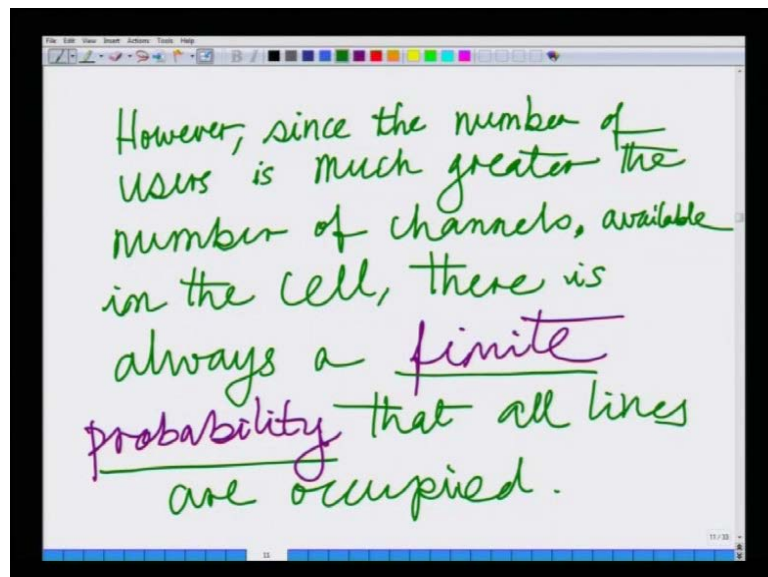 File Edit View Insert Actions Tools Help
However, since the number of
users is much greater the
number of channels, available
in the cell, there is
always a finite
probability that all lines
are occupied.
11/33
11